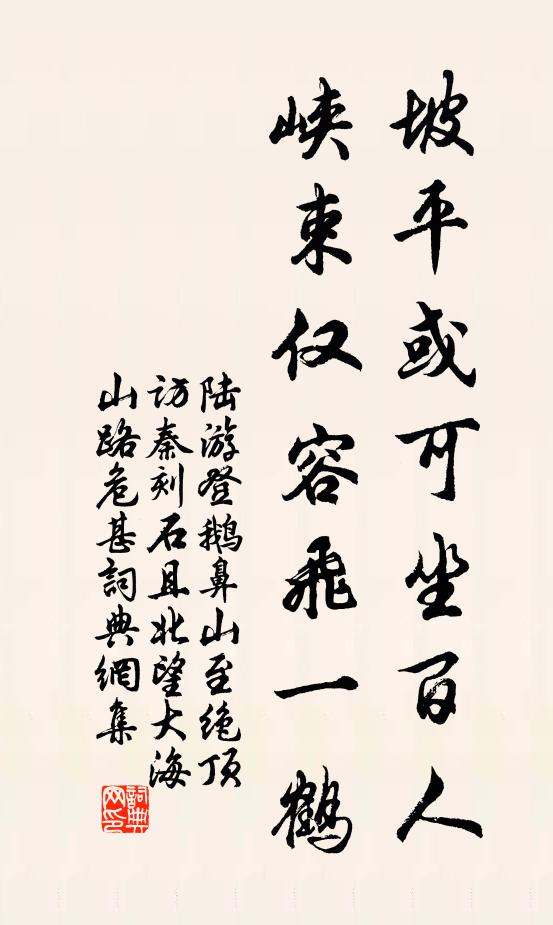 坡平或可坐百人
峡束仅容飛一鹤
陆游登鹅鼻山至绝顶
访秦刻石且北望大海
山路危甚詞典網集
詞典
网印